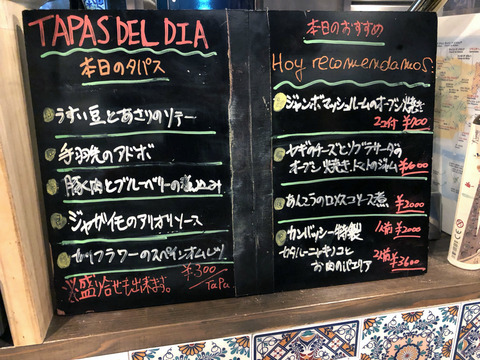 TAPAS DEL DIA
本日のタパス
うすい豆とあさりのソテー
手羽先のアドボ
豚肉とブルーベリーの煮込み
ジャガイモのアリオリソース
カリフラワーのスペインオムレツ
¥300
/TaPa
※盛り合せも出来ます。
本日のおすすめ
Hoy recomendamos:
ジャンボマッシュルームのオーブン焼き
2コ付 ¥700
ヤギのチーズとソブラサーダの
オーブン焼き、トマトのジャム ¥600
あんこうのロメスコソース煮
¥2000
カンバッシー特製 1人前 ¥2000
カタルーニャキノコと
お肉のパエリア 2人前 ¥3600